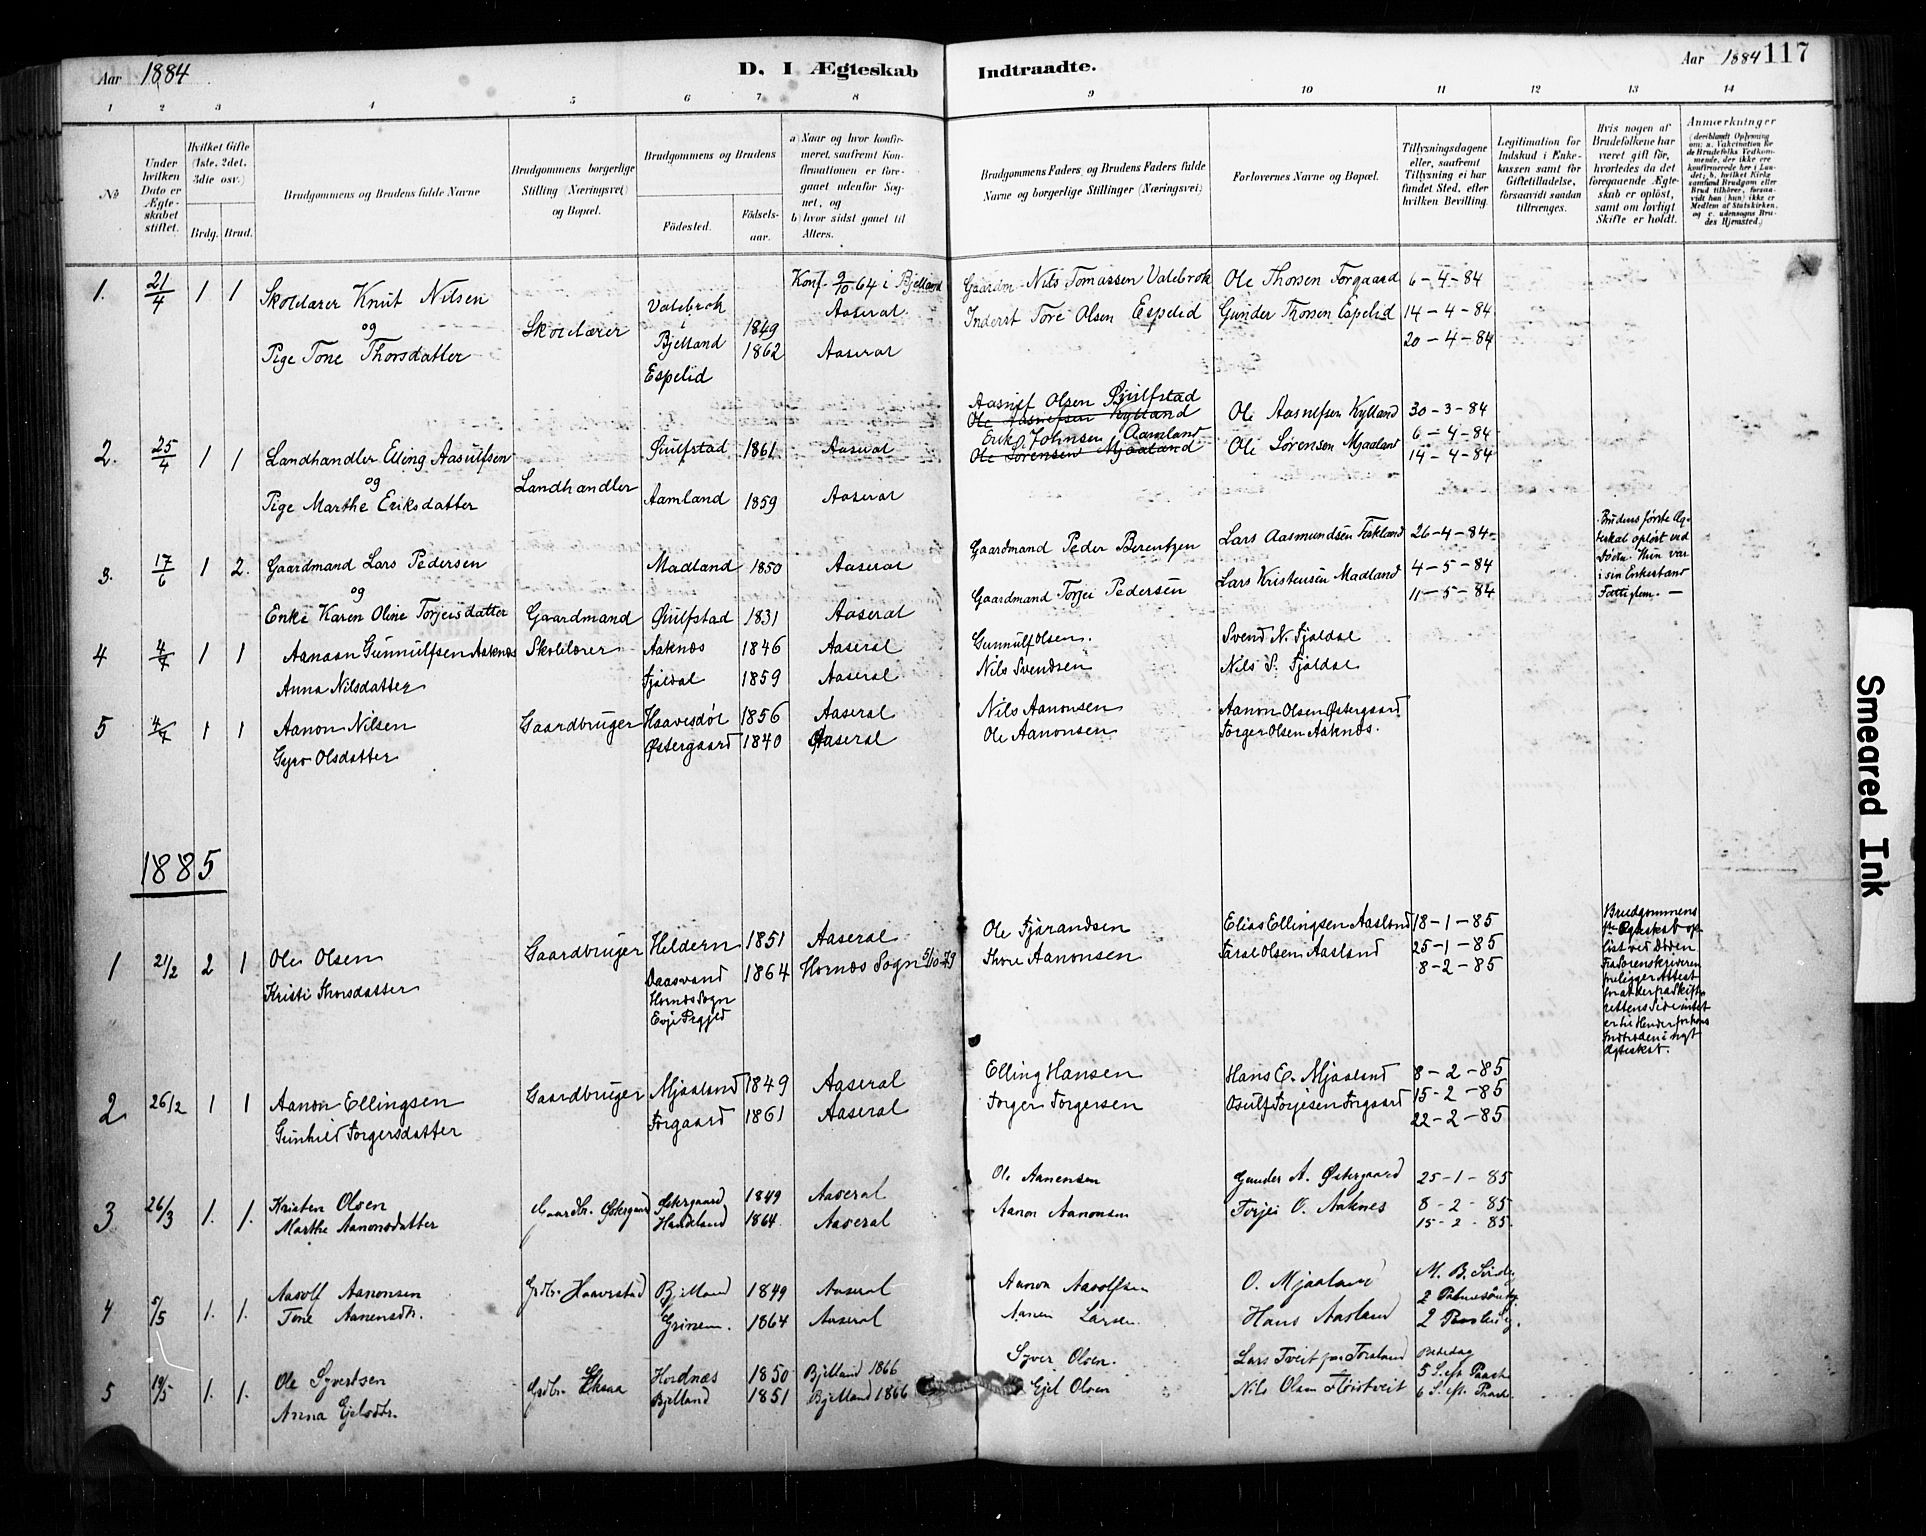 Aar 1884
D. I Ægteskab Indtraadte.
Aar 1884 117
1 2 3 4 5 6 7 8 9 10 11 12 13 14
№
Under hvilken Dato er Ægteskabet stiftet.
Hvilket Gifte (1ste, 2det, 3die osv.)
Brdg. Brud.
Brudgommens og Brudens fulde Navne
Brudgommens borgerlige Stilling (Næringsvei) og Bopæl.
Brudgommens og Brudens
Fødested.
Fødsels-aar.
a) Naar og hvor konfirmeret, saafremt Konfirmationen er foregaaet udenfor Sognet, og
b) hvor sidst gaaet til Alters.
Brudgommens Faders og Brudens Faders fulde Navne og borgerlige Stillinger (Næringsvei)
Forlovernes Navne og Bopæl.
Tillysningsdagene eller, saafremt Tillysning ei har fundet Sted, efter hvilken Bevilling.
Legitimation for Indskud i Enkekassen samt for Giftetilladelse, forsaavidt saadan tiltrænges.
Hvis nogen af Brudefolkene har været gift før, hvorledes da det foregaaende Ægteskab er opløst, samt om lovligt Skifte er holdt.
Anmærkninger
(deriblandt Oplysning om: a. Vaccination for de Brudefolks Vedkommende, der ikke ere konfirmerede her i Landet; b. hvilket Kirkesamfund Brudgom eller Brud tilhører, forsaavidt han (hun) ikke er Medlem af Statskirken, og c. udensogns Brudes Hjemsted.)
1. 21/4 1 1 Skolelærer Knut Nilsen Valebrok i Bjelland 1849 Konf. 9/10 64 i Bjelland Aaseral Gaardm. Nils Tomassen Valebrok Ole Thorsen Torgaard 6-4-84
og Skolelærer
Pige Tone Thorsdatter Espelid 1862 Aaseral Inderst Tore Olsen Espelid Gunder Thorsen Espelid 14-4-84
20-4-84
2. 25/4 1 1 Landhandler Elling Aasulfsen Quilfstad 1861 Aaseral Aasulf Olsen Quilfstad Ole Aasulfsen Kylland 30-3-84
Ole Aasulfsen Kylland
og Landhandler
Pige Marthe Eriksdatter Aamland 1859 Aaseral Erik Johnsen Aamland Ole Sørensen Mjaaland 6-4-84
Ole Sørensen Mjaaland 14-4-84
3. 17/6 1 2. Gaardmand Lars Pedersen Madland 1850 Aaseral Gaardmand Peder Berentzen Lars Aasmundsen 26-4-84
og
Enke Karen Oline Torjeisdatter Gaardmand Quilfstad 1831 Aaseral Gaardmand Torjei Pedersen Lars Kristensen Madland 4-5-84
11-5-84
Brudens første Ægteskab opløst ved Døden. Hun var i sin Enkestand Fattiglem. —
4 1 1 Aanaan Gunnulfsen Aaknes Skolelærer Aaknes 1846 Aaseral Gunnulf Olsen. Svend N. Fjaldal
Anna Nilsdatter Fjaldal 1859 Aaseral Nils Svendsen Nils S. Fjaldal
5 1 1 Aanon Nilsen Gaardbruger Haavesdøl 1856 Aaseral Nils Aanonsen Aanon Olsen Østergaard
Gyro Olsdatter Østergaard 1840 Aaseral Ole Aanonsen Torger Olsen Aaknes.
1885
1 21/2 2 1 Ole Olsen Gaardbruger Heldern 1851 Aaseral Ole Fjærandsen Elias Ellingsen Aasland 18-1-85
Kristi Thorsdatter Daasvand Hornes Sogn Evje Prgjld 1864 Hornes Sogn 5/10-79 Thore Aanonsen Taral Olsen Aasland 25-1-85
8-2-85
Brudgommens 1ste Ægteskab opløst ved Døden Fra Sorenskriveren foreligger Attest for at der fra Skifterettens Side intet er til Hinder for hans Indtræden i nyt Ægteskab.
2 26/2 1 1 Aanon Ellingsen Gaardbruger Mjaaland 1849 Aaseral Elling Hansen Hans E. Mjaaland 8-2-85
Gunhild Torgersdatter Torgaard 1861 Aaseral Torger Torgersen Osulf Torjesen Torgaard 15-2-85
22-2-85
3 26/3 1. 1. Kristen Olsen Gaardbr. Østergaard Østergaard 1849 Aaseral Ole Aanensen Gunder A. Østergaard 25-1-85
Marthe Aanonsdatter Haadland 1864 Aaseral Aanon Aanonsen Torjei O. Aaknes 8-2-85
15-2-85.
4 5/5 1. 1. Aasolf Aanonsen Grdbr. Haaverstad Bjelland 1849 Aaseral Aanon Aasolfsen O. Mjaaland M. B. Sønd.
Tone Aanensdtr. Grinem. 1864 Aaseral Aanen Larsen Hans Aasland 2 Palmesøndg.
2 Paaskedg.
5 19/5 1. 1. Ole Syvertsen Grdbr. Eksaa Hordnæs 1850 Bjelland 1866 Syver Olsen. Lars Tveit paa Torsland Bededag
Anna Ejelsdtr. Bjelland 1851 Bjelland 1866 Ejel Olsen Nils Olsen 5 S. eft. Paaske
6 S. eft. Paaske
Smeared Ink